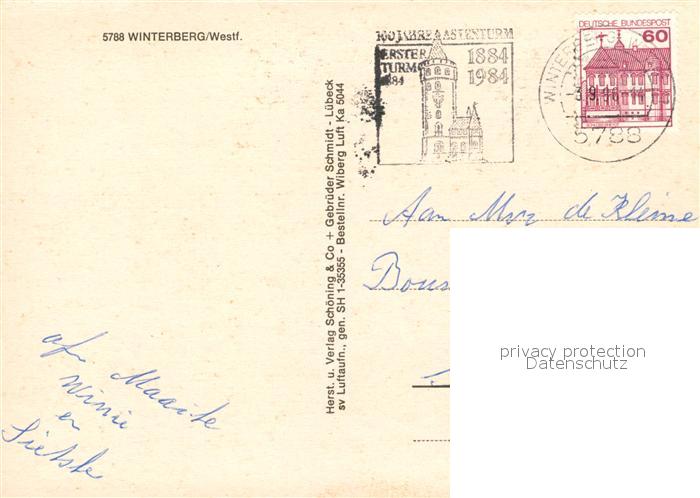 5788 WINTERBERG/Westf.
100 JAHRE ASTENTURM
ERSTER
TURM
1884
1884
1984
DEUTSCHE BUNDESPOST
60
WINTERBERG
5788
Herst. u. Verlag Schöning & Co + Gebrüder Schmidt - Lübeck
sv Luftaufn., gen. SH 1-35355 - Bestellnr. Wiberg Luft Ka 5044
Aan Mvr de Kleine
privacy protection
Datenschutz
afz Maaike
Winie
en
Sietske